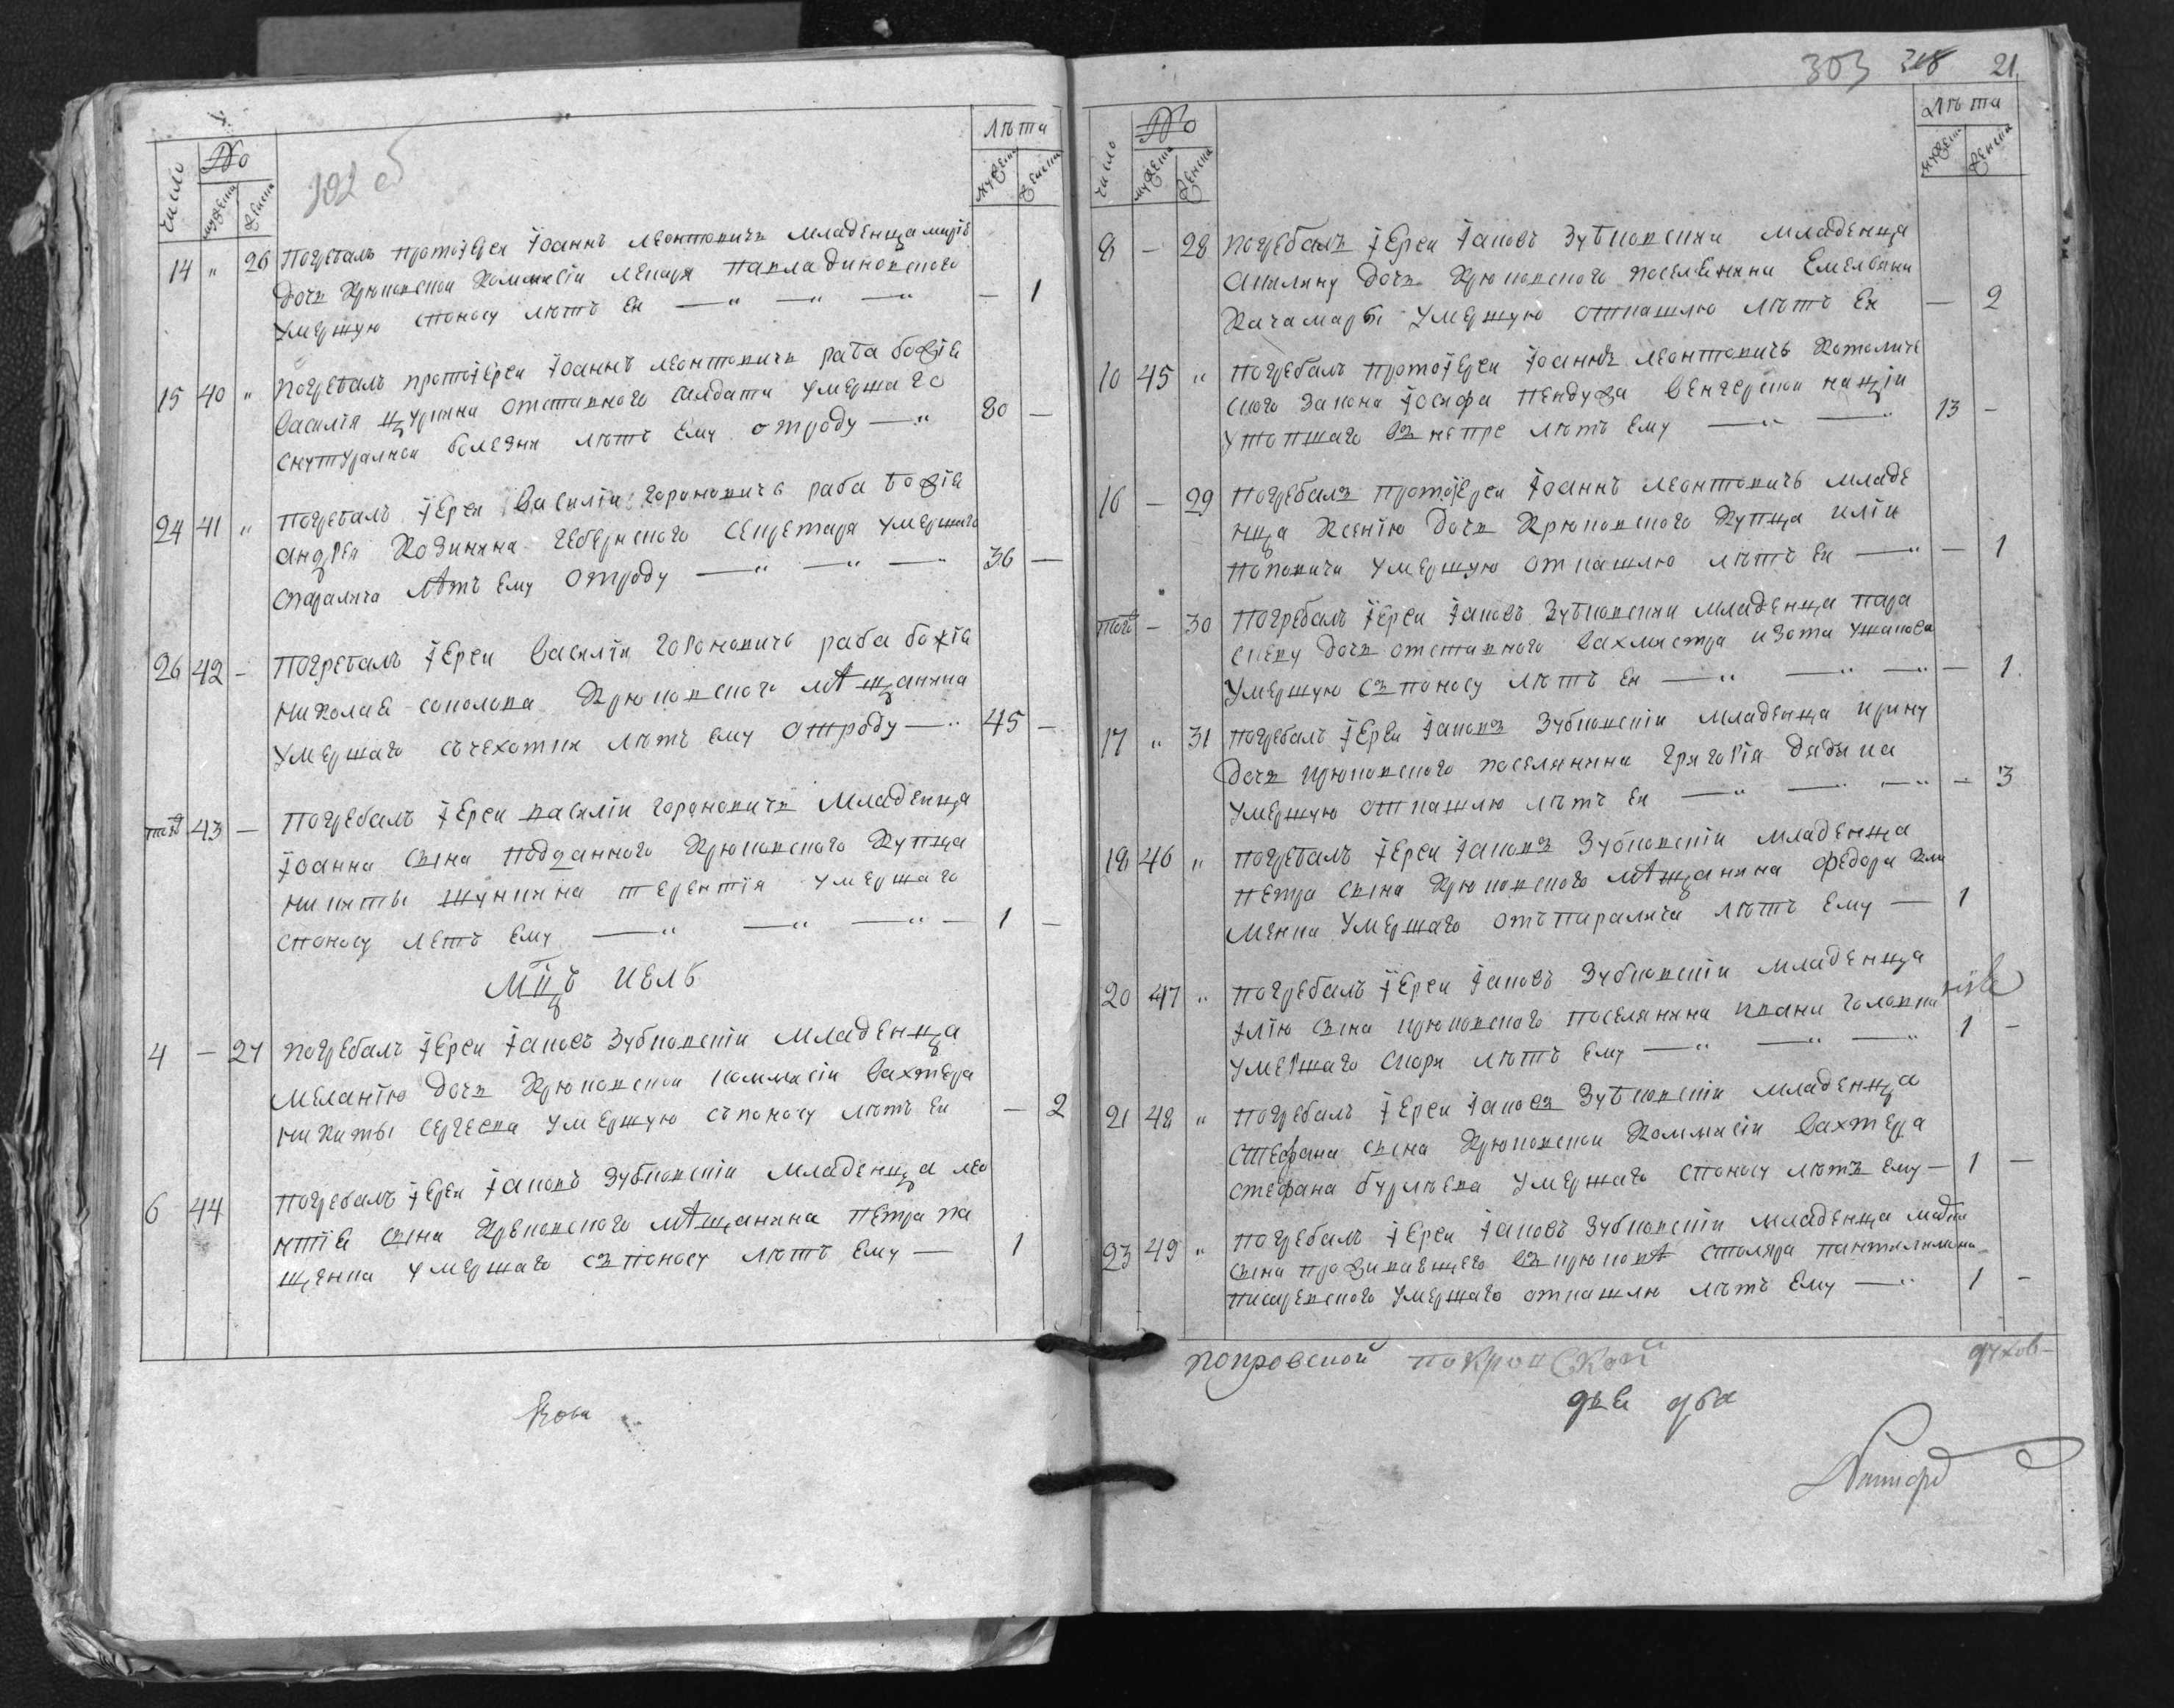 302 об
Число
№
мужеска
женска
Лѣта
мужеска
женска
14 " 26 Погребалъ протоіерей Іоаннъ Леонтовичъ младенца Марію
дочь Крюковской коммисіи лекаря Павладиновского
умершую споносу лѣтъ ей — " — " — — 1
15 40 " Погребалъ протоіерей Іоаннъ Леонтовичъ раба божія
Василія отставного салдата умершаго
снутуралной болезни лѣтъ ему отроду — " 80 —
24 41 " Погребалъ іерей Василій Гороновичъ раба божія
Андрея Кодинина геберского секретаря умершаго
спаралича лѣтъ ему отроду — " — " — 36 —
26 42 - Погребалъ іерей Василій Гороновичъ раба божія
Николая Соколова Крюковского мѣщанина
умершаго съчехотки лѣтъ ему отроду — " 45 —
тогож 43 — Погребалъ іерей Василій Гороновичъ младенца
Іоанна сына подданного Крюковского купца
Никиты Шункина Терентія умершаго
споносу летъ ему — " — " — " — 1 —
Мцъ Июль
4 — 27 Погребалъ іерей Іаковъ Зубковскій младенца
Меланію дочь Крюковской коммисіи вахтера
Никиты Сергеева умершую съпоносу лѣтъ ей — 2
6 44 Погребалъ іерей Іаковъ Зубковскій младенца Лео
нтія сына Крековского мѣщанина Петра Па
щенка умершаго съпоносу лѣтъ ему — 1
303 318 21
Число
№
мужеска
женска
Лѣта
мужеска
женска
8 — 28 Погребалъ іерей Іаковъ Зубковскій младенца
Акилину дочь Крюковского поселянина Емельяна
Качамары умершую откашлю лѣтъ ей — 2
10 45 " Погребалъ протоіерей Іоаннъ Леонтовичъ католиче
ского закона Іосифа Пендужа венгерской націи
утопшаго въ непре лѣтъ ему — " — " 13 —
16 — 29 Погребалъ протоіерей Іоаннъ Леонтовичъ младе
нца Ксенію дочь Крюковского купца Иліи
Поповича умершую откашлю лѣтъ ей — " — 1
тогож — 30 Погребалъ іерей Іаковъ Зубковскій младенца Пара
скеву дочь отставного вахмистра Изота Ушакова
умершую съпоносу лѣтъ ей — " — " — " — 1.
17 " 31 Погребалъ іерей Іаковъ Зубковскій младенца Ирину
дочь крюковского поселянина Григорія
умершую откашлю лѣтъ ей — " — " — " — 3
18 46 " Погребалъ іерей Іаковъ Зубковскій младенца
Петра сына Крюковского мѣщанина Федора Кли
менка умершаго отъпаралича лѣтъ ему — 1
20 47 " Погребалъ іерей Іаковъ Зубковскій младенца
Ілію сына крюковского поселянина Ивана Головка
умершаго скори лѣтъ ему — " — " — " 1 —
21 48 " Погребалъ іерей Іаковъ Зубковскій младенца
Стефана сына Крюковской коммисіи вахтера
Стефана Бурлѣева умершаго споносу лѣтъ ему — 1 —
23 49 " Погребалъ іерей Іаковъ Зубковскій младенца
сына проживаещего въ крюковѣ столяра Пантилимона
Писаревского умершаго откашлю лѣтъ ему — " 1 —
покровской покровской духов-
две два